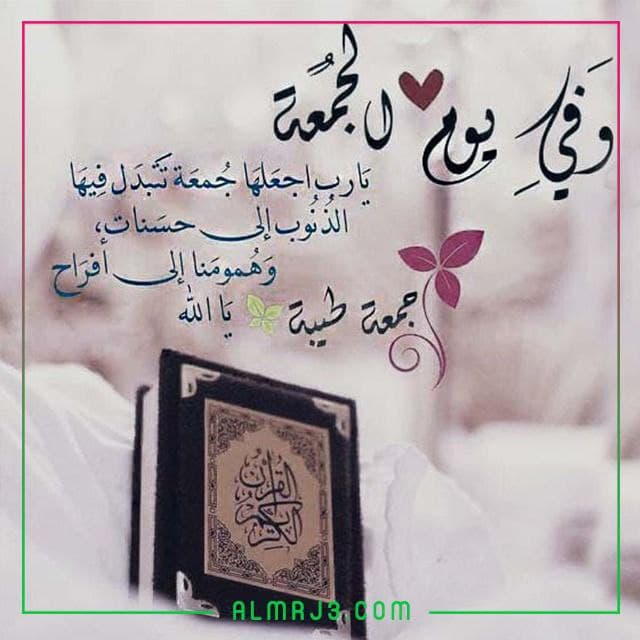 وَفي يوم الجُمعة
يَارب اجعَلهَا جُمعَة تَتبدَل فِيهَا
الذُنُوب إلى حسَنات،
وَهُمومَنا إلى أفرَاح
يَا الله
جمعة طيبة
القرآن الكريم
ALMRJ3.COM